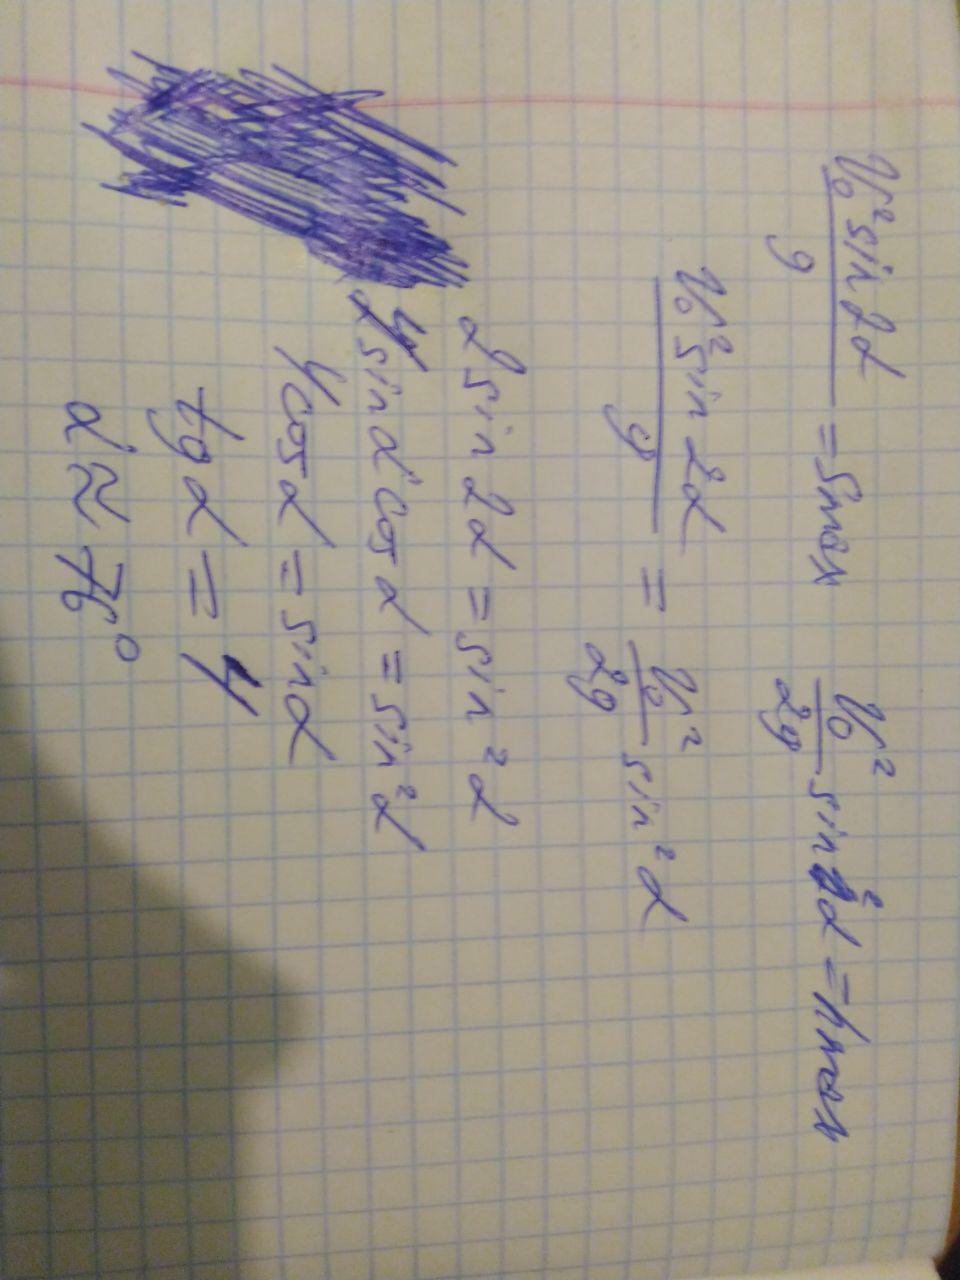 V₀² sin 2α / g = Smax    V₀² / 2g sin² α = hmax
V₀² sin 2α / g = V₀² / 2g sin² α
2 sin 2α = sin² α
4 sin α cos α = sin² α
4 cos α = sin α
tg α = 4
α ≈ 76°